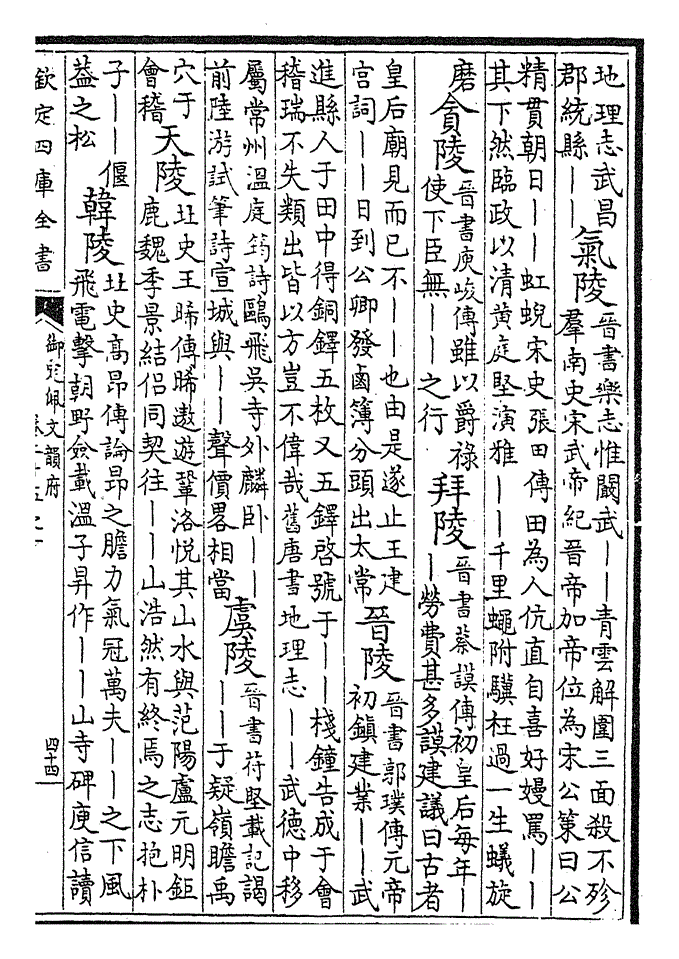 地理志武昌
郡統縣——
氣陵
晉書樂志惟闘武——青雲解圍三面殺不殄
羣南史宋武帝紀晉帝加帝位為宋公策曰公
精貫朝日——虹蜺宋史張田傳田為人伉直自喜好嫚罵——
其下然臨政以清黄庭堅演雅——千里蠅附驥枉過一生蟻旋
磨
貪陵
晉書庾峻傳雖以爵祿
使下臣無——之行
拜陵
晉書蔡謨傳初皇后每年—
—勞費甚多謨建議曰古者
皇后廟見而已不——也由是遂止王建
宫詞——日到公卿發鹵簿分頭出太常
晉陵
晉書郭璞傳元帝
初鎮建業——武
進縣人于田中得銅鐸五枚又五鐸啓號于——棧鐘告成于會
稽瑞不失類出皆以方豈不偉哉舊唐書地理志——武德中移
屬常州溫庭筠詩鷗飛吳寺外麟卧——
前陸游試筆詩宣城與——聲價畧相當
虞陵
晉書苻堅載記謁
——于疑嶺瞻禹
穴于
會稽
天陵
北史王晞傳晞遨遊鞏洛悦其山水與范陽盧元明鉅
鹿魏季景結侣同契往——山浩然有終焉之志抱朴
子——偃
葢之松
韓陵
北史高昂傳論昂之膽力氣冠萬夫——之下風
飛電擊朝野僉載溫子昇作——山寺碑庾信讀
欽定四庫全書
御定佩文韻府
四十四